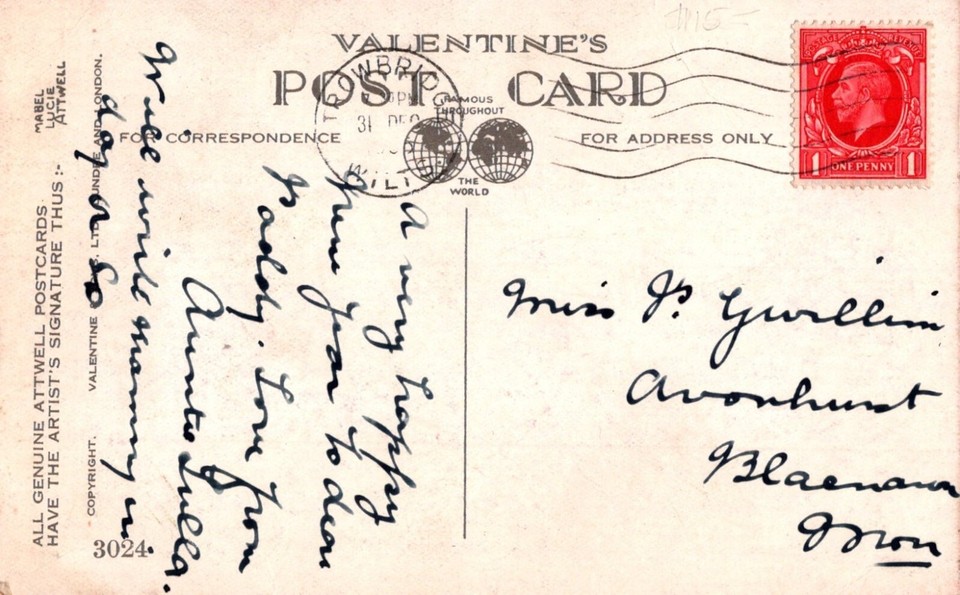 VALENTINE'S
POST CARD
FAMOUS
THROUGHOUT
THE
WORLD
FOR CORRESPONDENCE
FOR ADDRESS ONLY
TROWBRIDGE
31 DEC
WILTS
1 ONE PENNY 1
A very happy
New Year to dear
Paddy. Love from
Auntie Lulla.
Will write mammy in
day or so
Miss P. Gwillim
Avonhurst
Blaenavon
Mon
ALL GENUINE ATTWELL POSTCARDS
HAVE THE ARTIST'S SIGNATURE THUS :-
MABEL
LUCIE
ATTWELL
COPYRIGHT. VALENTINE LTD. DUNDEE AND LONDON.
3024